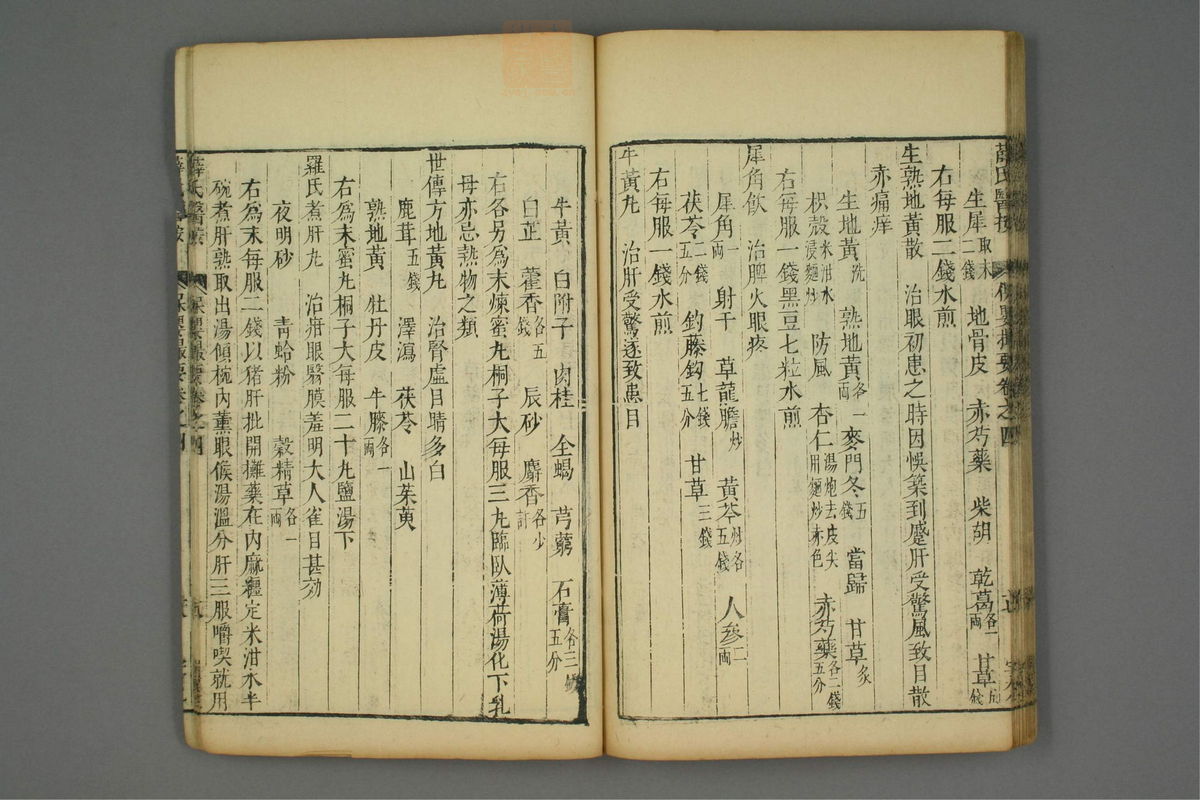 薛氏醫按 保嬰撮要卷之四
生犀二錢取末 地骨皮 赤芍藥 柴胡 乾葛各一兩 甘草錢
右每服二錢水煎
生熟地黃散 治眼初患之時因悞築到蹙肝受驚風致目散
赤痛痒
生地黃洗 熟地黃各一兩 麥門冬五錢 當歸 甘草炙
枳殼米泔水浸麵炒 防風 杏仁湯炮去皮尖用麵炒赤色 赤芍藥各二錢五分
右每服一錢黑豆七粒水煎
犀角飲 治脾火眼疼
犀角一兩 射干 草龍膽炒 黃芩炒各五錢 人參二兩
茯苓二錢五分 鈎藤鈎七錢五分 甘草三錢
右每服一錢水煎
牛黃丸 治肝受驚遂致患目
牛黃 白附子 肉桂 全蝎 芎藭 石膏各二錢五分
白芷 藿香各五錢 辰砂 麝香各少許
右各另爲末煉蜜丸桐子大每服三丸臨臥薄荷湯化下乳
母亦忌熱物之類
世傳方地黃丸 治腎虛目睛多白
鹿茸五錢 澤瀉 茯苓 山茱萸
熟地黃 牡丹皮 牛膝各一兩
右爲末蜜丸桐子大每服二十丸鹽湯下
羅氏煮肝丸 治疳眼翳膜羞明大人雀目甚効
夜明砂 青蛤粉 穀精草各一兩
右爲末每服二錢以猪肝批開攤藥在内麻纏定米泔水半
碗煮肝熟取出湯傾椀内薰眼候湯溫分肝三服嚼喫就用
薛氏醫按 保嬰撮要卷之四